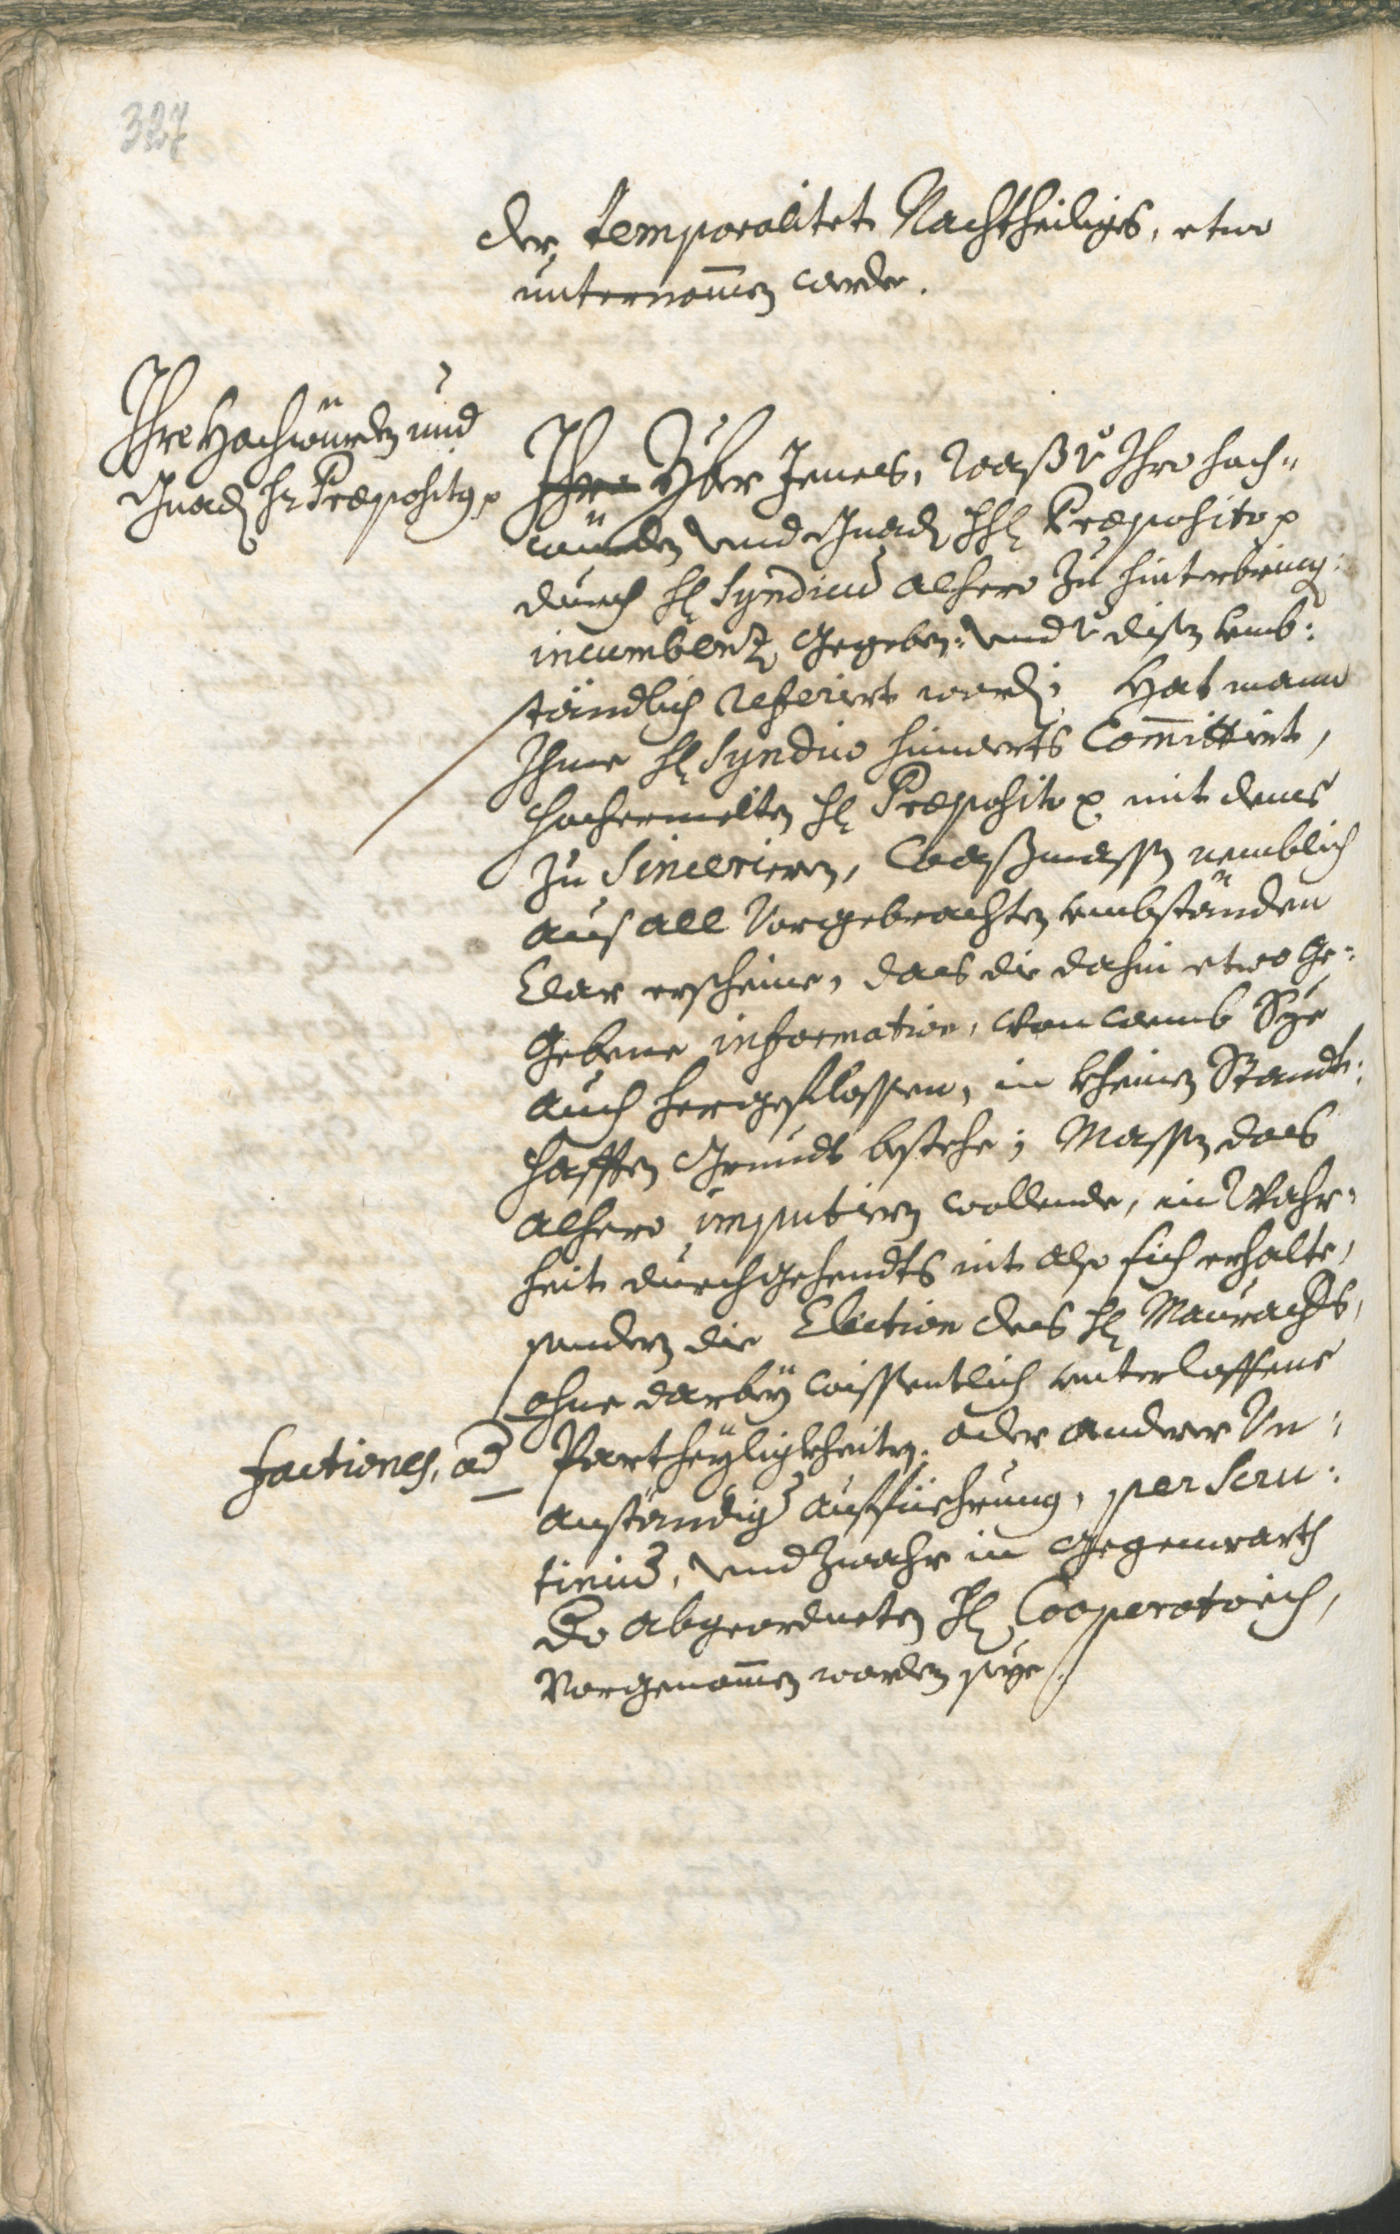 327
der temporalitet Nachtheiliges, etwo
unternom̄en werde.
Ihre Hochwürden und
Gnad. Hr. Præpositus
Ihro Yber Jenes, waß Ihro hoch-
würden vnd Gnad. Hl. Præposito
durch Hl. Syndicum alhero Zu hinterbring:
incumbenz gegeben: vnd disen vmb:
ständlich referiert word; Hat mann
Ihme Hl. Syndico hinwerts Com̄ittirt,
hochermelten Hl. Præposito mit deme
Zu Sincerieren, waßmassen nemblich
aus all Vorgebrachten vmbständen
Clar erscheine, das die dahin etwo ge-
gebene information, von wemb Sye
auch hergeflossen, in kheinen Standt:
hafften Grundt bestehe; Massen das
alhero imputiern wollende, in Wahr-
heit durchgehendts nit also sich erhalte,
sondern die Election des Hl. Maurachers,
ohne darbey wissentlich vnterloffene
factiones, od
Partheyligkheiten, oder anderer Un-
anständiger auffüehrung, per Scru:
tinium, vnd Zwahr in gegenwarth
Do abgeordneten Hl. Cooperatoris,
Vorgenom̄en worden seye.